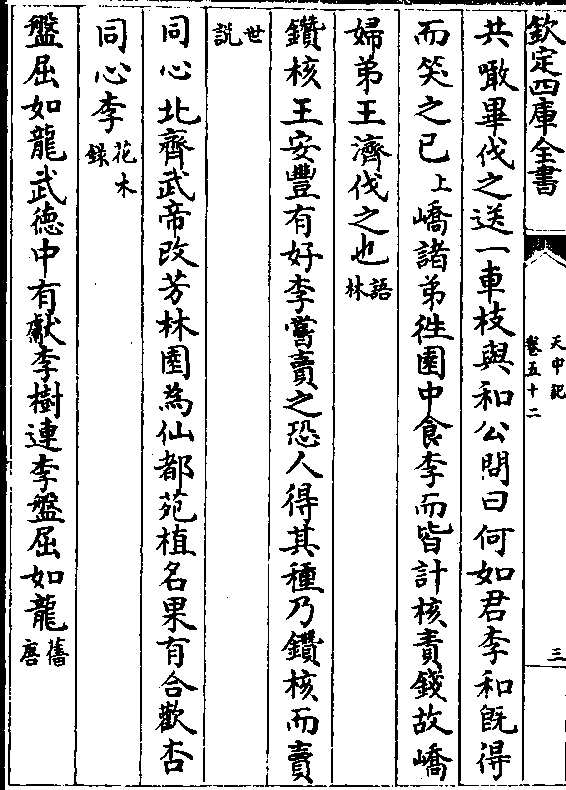 欽定四庫全書
天中記
卷五十二
三
共噉畢伐之送一車枝與和公問曰何如君李和既得
而笑之已上嶠諸弟徃園中食李而皆計核責錢故嶠
婦弟王濟伐之也語林
鑽核王安豐有好李嘗賣之恐人得其種乃鑽核而賣
世説
同心北齊武帝改芳林園為仙都苑植名果有合歡杏
同心李花木録
盤屈如龍武德中有獻李樹連李盤屈如龍舊唐